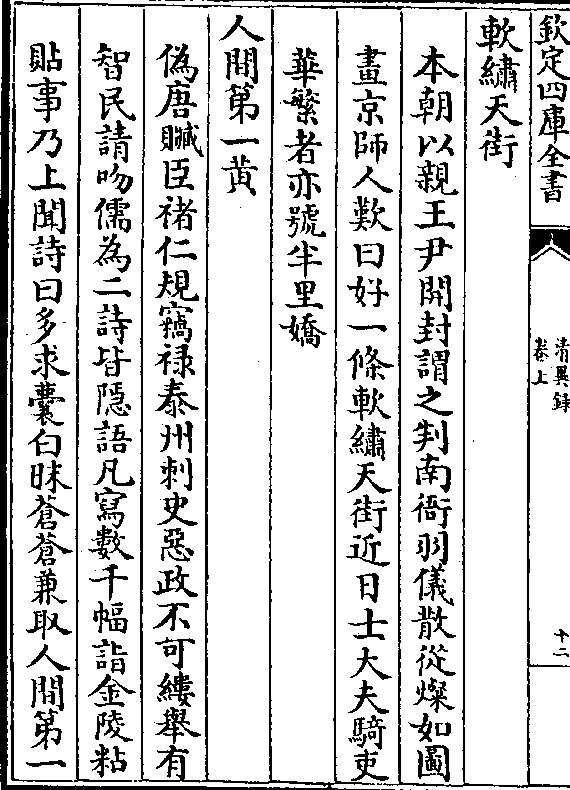 欽定四庫全書
清異録
卷上
十二
軟繡天街
本朝以親王尹開封謂之判南衙羽儀散從燦如圖
畫京師人歎曰好一條軟繡天街近日士大夫騎吏
華繁者亦號半里嬌
人間第一黄
偽唐贓臣禇仁規竊禄泰州刺史惡政不可縷舉有
智民請吻儒為二詩皆隠語凡寫數千幅詣金陵粘
貼事乃上聞詩曰多求囊白昧蒼蒼兼取人間第一